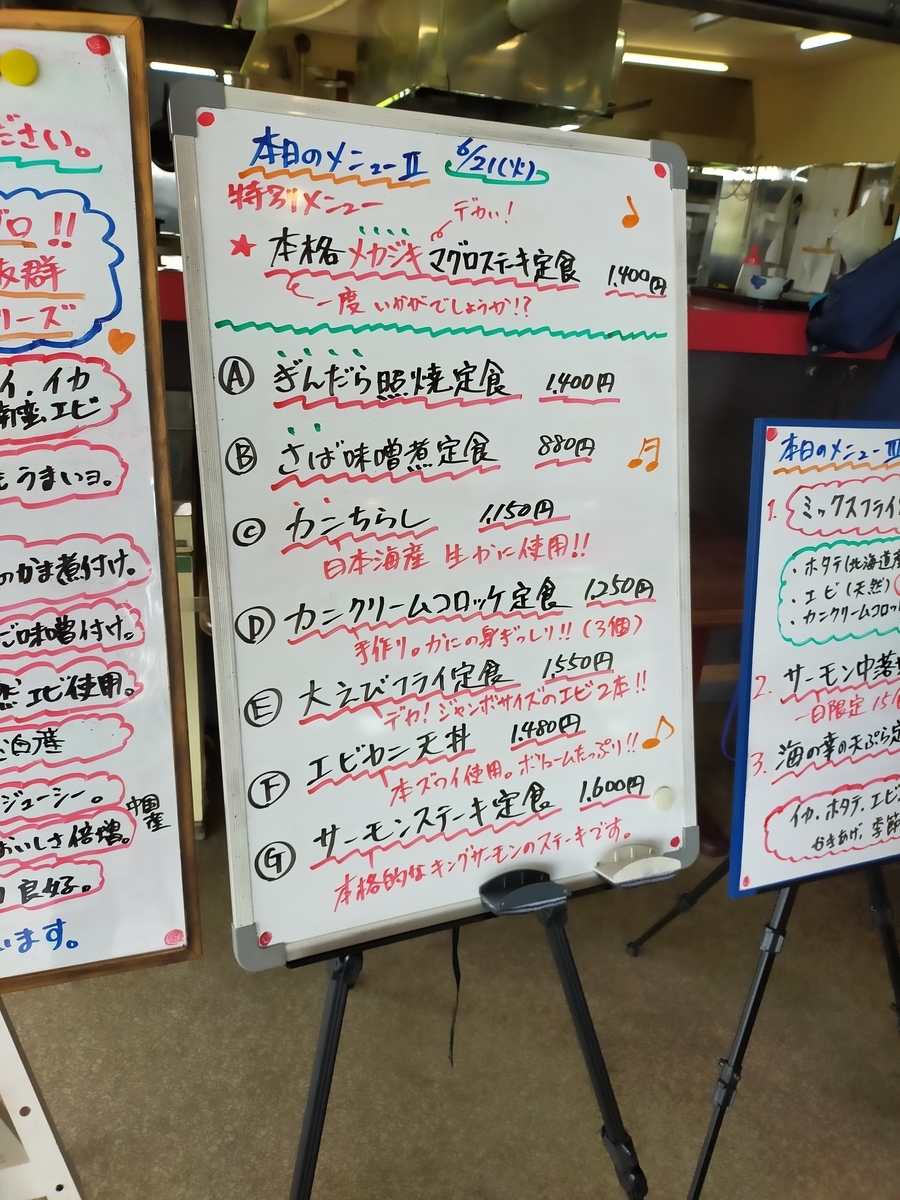 ださい。
ブロ!!
抜群
リーズ
イ.イカ
エビ
もうまいヨ。
のかま煮付け。
ご味噌付け。
エビ使用。
産
ジューシー。
中国産
おいしさ倍増。
良好。
います。
本日のメニューⅡ 6/21(火)
特別メニュー
デカい!
★本格メカジキマグロステーキ定食 1,400円
一度いかがでしょうか!?
Ⓐ ぎんだら照焼定食 1,400円
Ⓑ さば味噌煮定食 880円
Ⓒ カニちらし 1,150円
日本海産 生かに使用!!
Ⓓ カニクリームコロッケ定食 1,250円
手作り。かにの身ぎっしり!!(3個)
Ⓔ 大えびフライ定食 1,550円
デカ!ジャンボサイズのエビ2本!!
Ⓕ エビカニ天丼 1,480円
本ズワイ使用。ボリュームたっぷり!!
Ⓖ サーモンステーキ定食 1,600円
本格的なキングサーモンのステーキです。
本日のメニューⅢ
1. ミックスフライ
・ホタテ(北海道産
・エビ(天然)
・カニクリームコロッ
2. サーモン中落
一日限定15
3. 海の幸の天ぷら定
イカ、ホタテ、エビ
かきあげ、季節